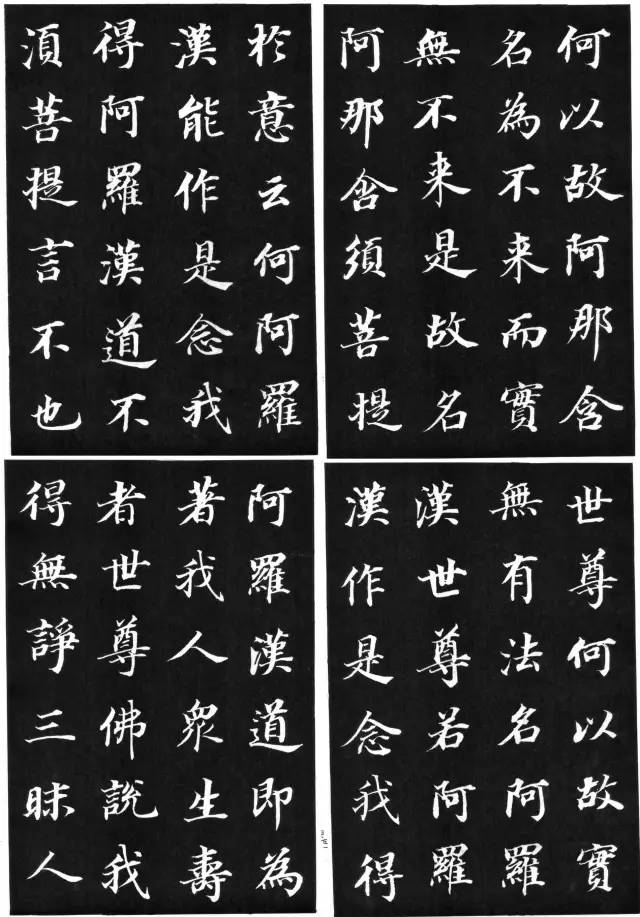 何以故阿那含
名為不来而實
無不来是故名
阿那含須菩提
於意云何阿羅
漢能作是念我
得阿羅漢道不
須菩提言不也
世尊何以故實
無有法名阿羅
漢世尊若阿羅
漢作是念我得
阿羅漢道即為
著我人眾生壽
者世尊佛說我
得無諍三昧人